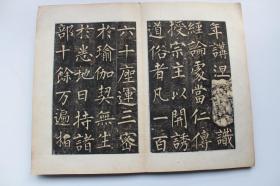 年講涅識
經論處當仁傳
授宗主以開誘
道俗者凡一百
六十座運三密
於瑜伽契無生
於悉地日持諸
部十餘万遍指